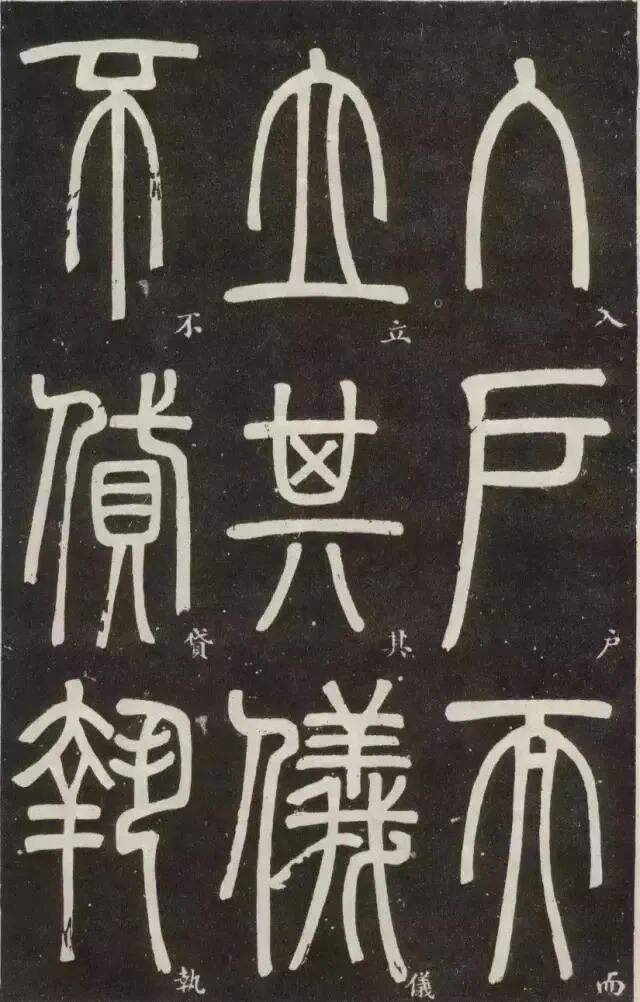 入戶而
立其儀
不貸執